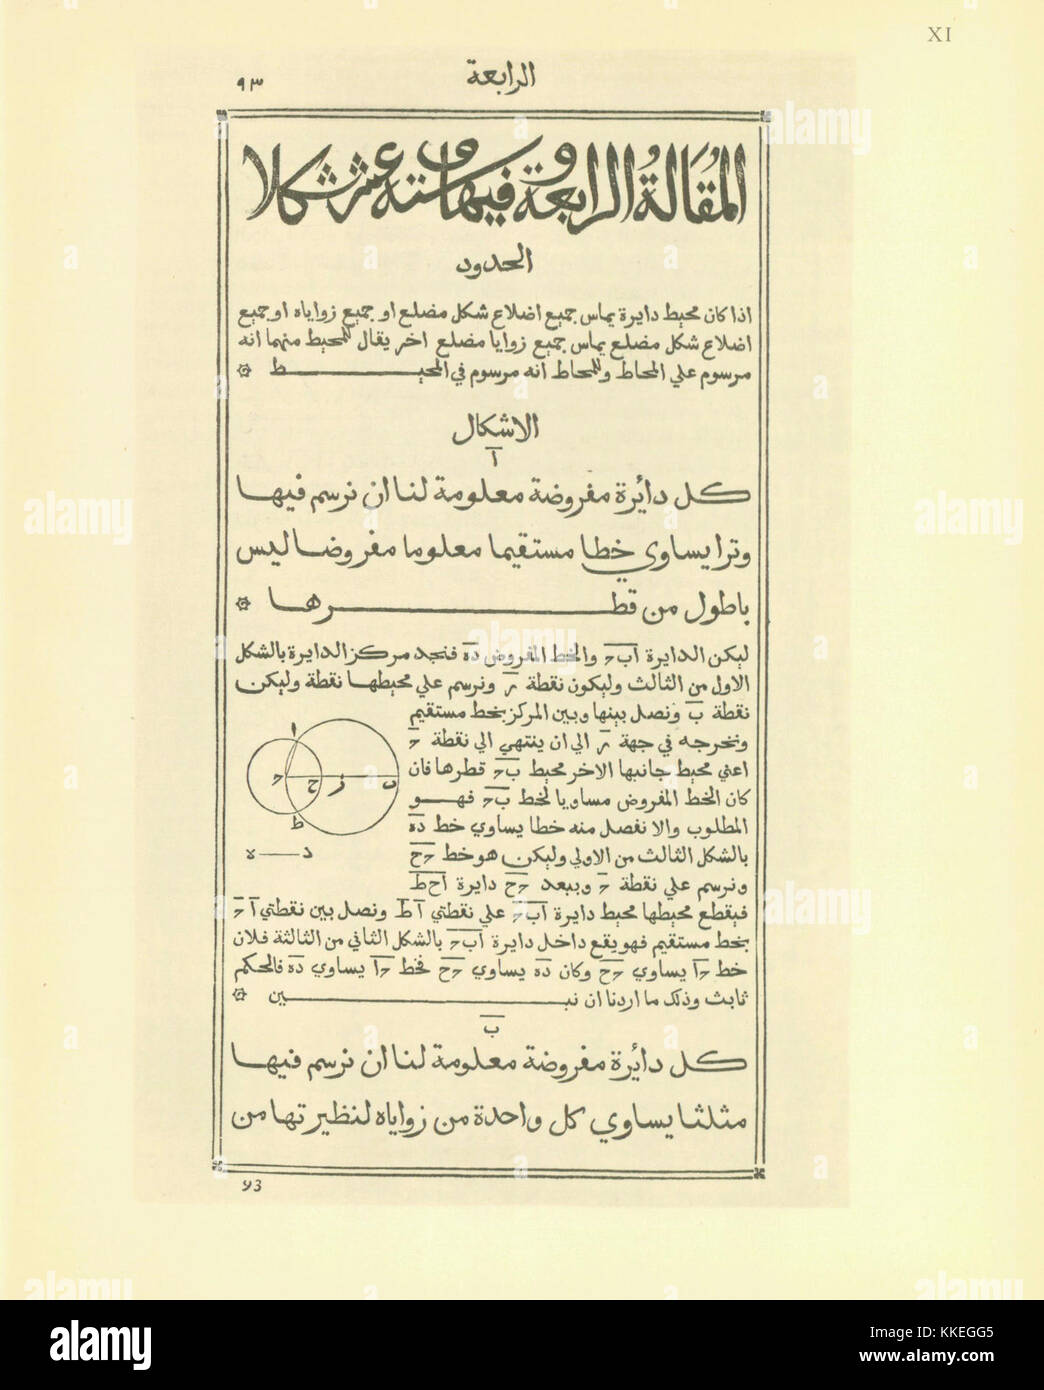 XI
الرابعة
٩٣
المقالة الرابعة وفيها ستة عشر شكلا
الحدود
اذا كان محيط دايرة يماس جميع اضلاع شكل مضلع او جميع زواياه او جميع
اضلاع شكل مضلع يماس جميع زوايا مضلع اخر يقال للمحيط منهما انه
مرسوم علي المحاط وللمحاط انه مرسوم في المحيط
الاشكال
ا
كل دائرة مفروضة معلومة لنا ان نرسم فيها
وترا يساوي خطا مستقيما معلوما مفروضا ليس
باطول من قطرها
ليكن الدايرة ابح والخط المفروض ده فنجد مركز الدايرة بالشكل
الاول من الثالث وليكون نقطة ر ونرسم علي محيطها نقطة وليكن
نقطة ب ونصل بينها وبين المركز بخط مستقيم
ونخرجه في جهة ر الي ان ينتهي الي نقطة ح
اعني محيط جانبها الاخر محيط بح قطرها فان
كان الخط المفروض مساويا لخط بح فهو
المطلوب والا نفصل منه خطا يساوي خط ده
بالشكل الثالث من الاولي وليكن هو خط حح
ونرسم علي نقطة ح وببعد حح دايرة احط
فيقطع محيطها محيط دايرة ابح علي نقطتي ا ط ونصل بين نقطتي ا ح
بخط مستقيم فهو يقع داخل دايرة ابح بالشكل الثاني من الثالثة فلان
خط حا يساوي حح وكان ده يساوي حح فخط حا يساوي ده فالحكم
ثابت وذلك ما اردنا ان نبين
ا
ح ح ر ب
ط
د ه
ب
كل دائرة مفروضة معلومة لنا ان نرسم فيها
مثلثا يساوي كل واحدة من زواياه لنظيرتها من
93
alamy
Image ID: KKEGG5
www.alamy.com